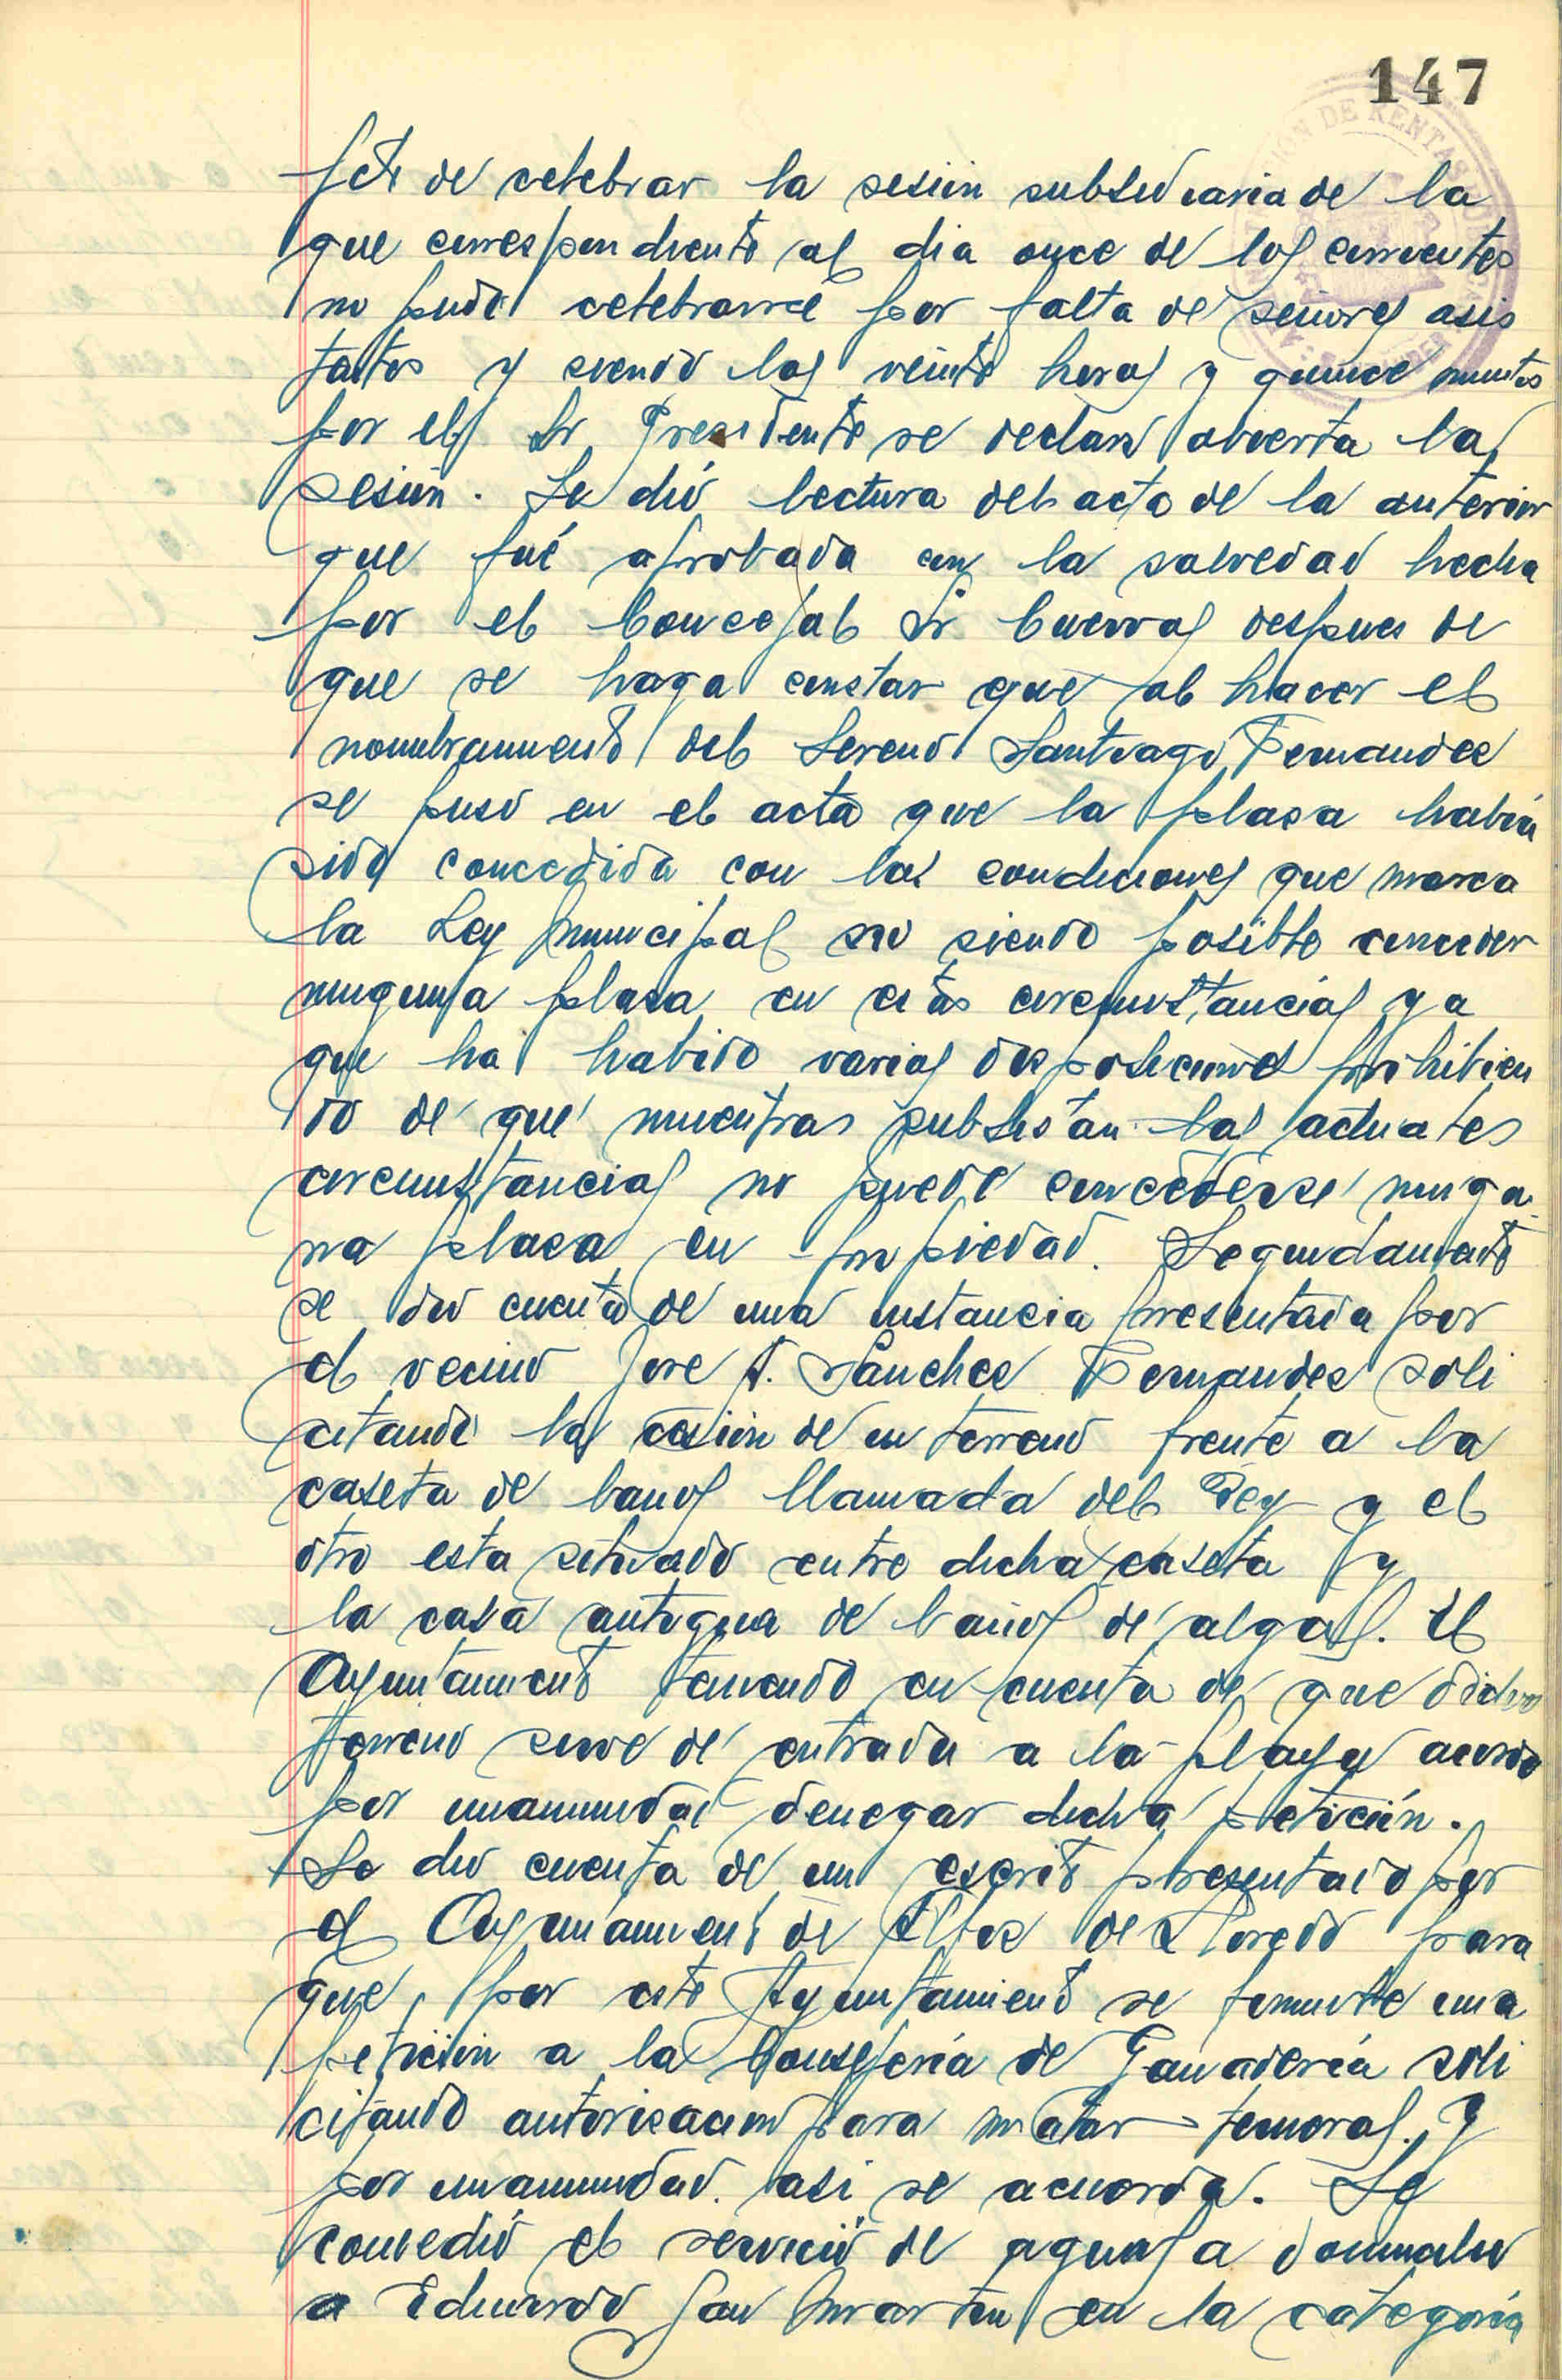 147
jeto de celebrar la sesión subsidiaria de la
que correspondiente al dia once de los corrientes
no pudo celebrarse por falta de señores asis
tentes y siendo las veinte horas y quince minutos
por el Sr Presidente se declaró abierta la
sesión. Se dió lectura del acta de la anterior
que fué aprobada con la salvedad hecha
por el Concejal Sr Cuerras despues de
que se haga constar que al hacer el
nombramiento del Sereno Santiago Fernandez
se puso en el acta que la plaza había
sido concedida con las condiciones que marca
la Ley Municipal no siendo posible conceder
ninguna plaza en estas circunstancias ya
que ha habido varias disposiciones prohibien
do de que mientras subsistan las actuales
circunstancias no puede concederse ningu
na plaza en propiedad. Seguidamente
se dio cuenta de una instancia presentada por
el vecino Jose A. Sanchez Fernandez soli
citando la cesión de un terreno frente a la
caseta de baños llamada del Rey y el
otro esta situado entre dicha caseta y
la casa antigua de baños de algas. El
Ayuntamiento teniendo en cuenta de que dicho
terreno sirve de entrada a la playa acordo
por unanimidad denegar dicha petición.
Se dio cuenta de un escrito presentado por
el Ayuntamiento de Alfoz de Lloredo para
que por este Ayuntamiento se formule una
petición a la Consejería de Ganadería soli
citando autorizacion para matar terneras. Y
por unanimidad asi se acuerda. Se
concedió el servicio de aguas a domicilio
a Eduardo San Martin en la categoría